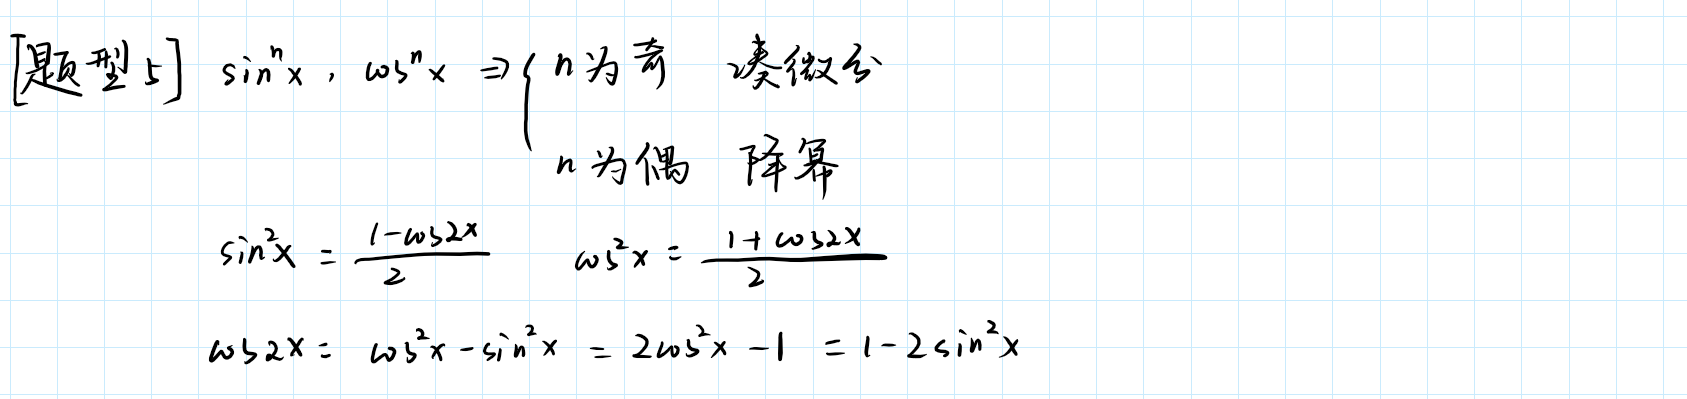 [题型5] sinⁿx, cosⁿx ⇒ { n为奇 凑微分
n为偶 降幂
sin²x = (1-cos2x)/2 cos²x = (1+cos2x)/2
cos2x = cos²x - sin²x = 2cos²x - 1 = 1 - 2sin²x